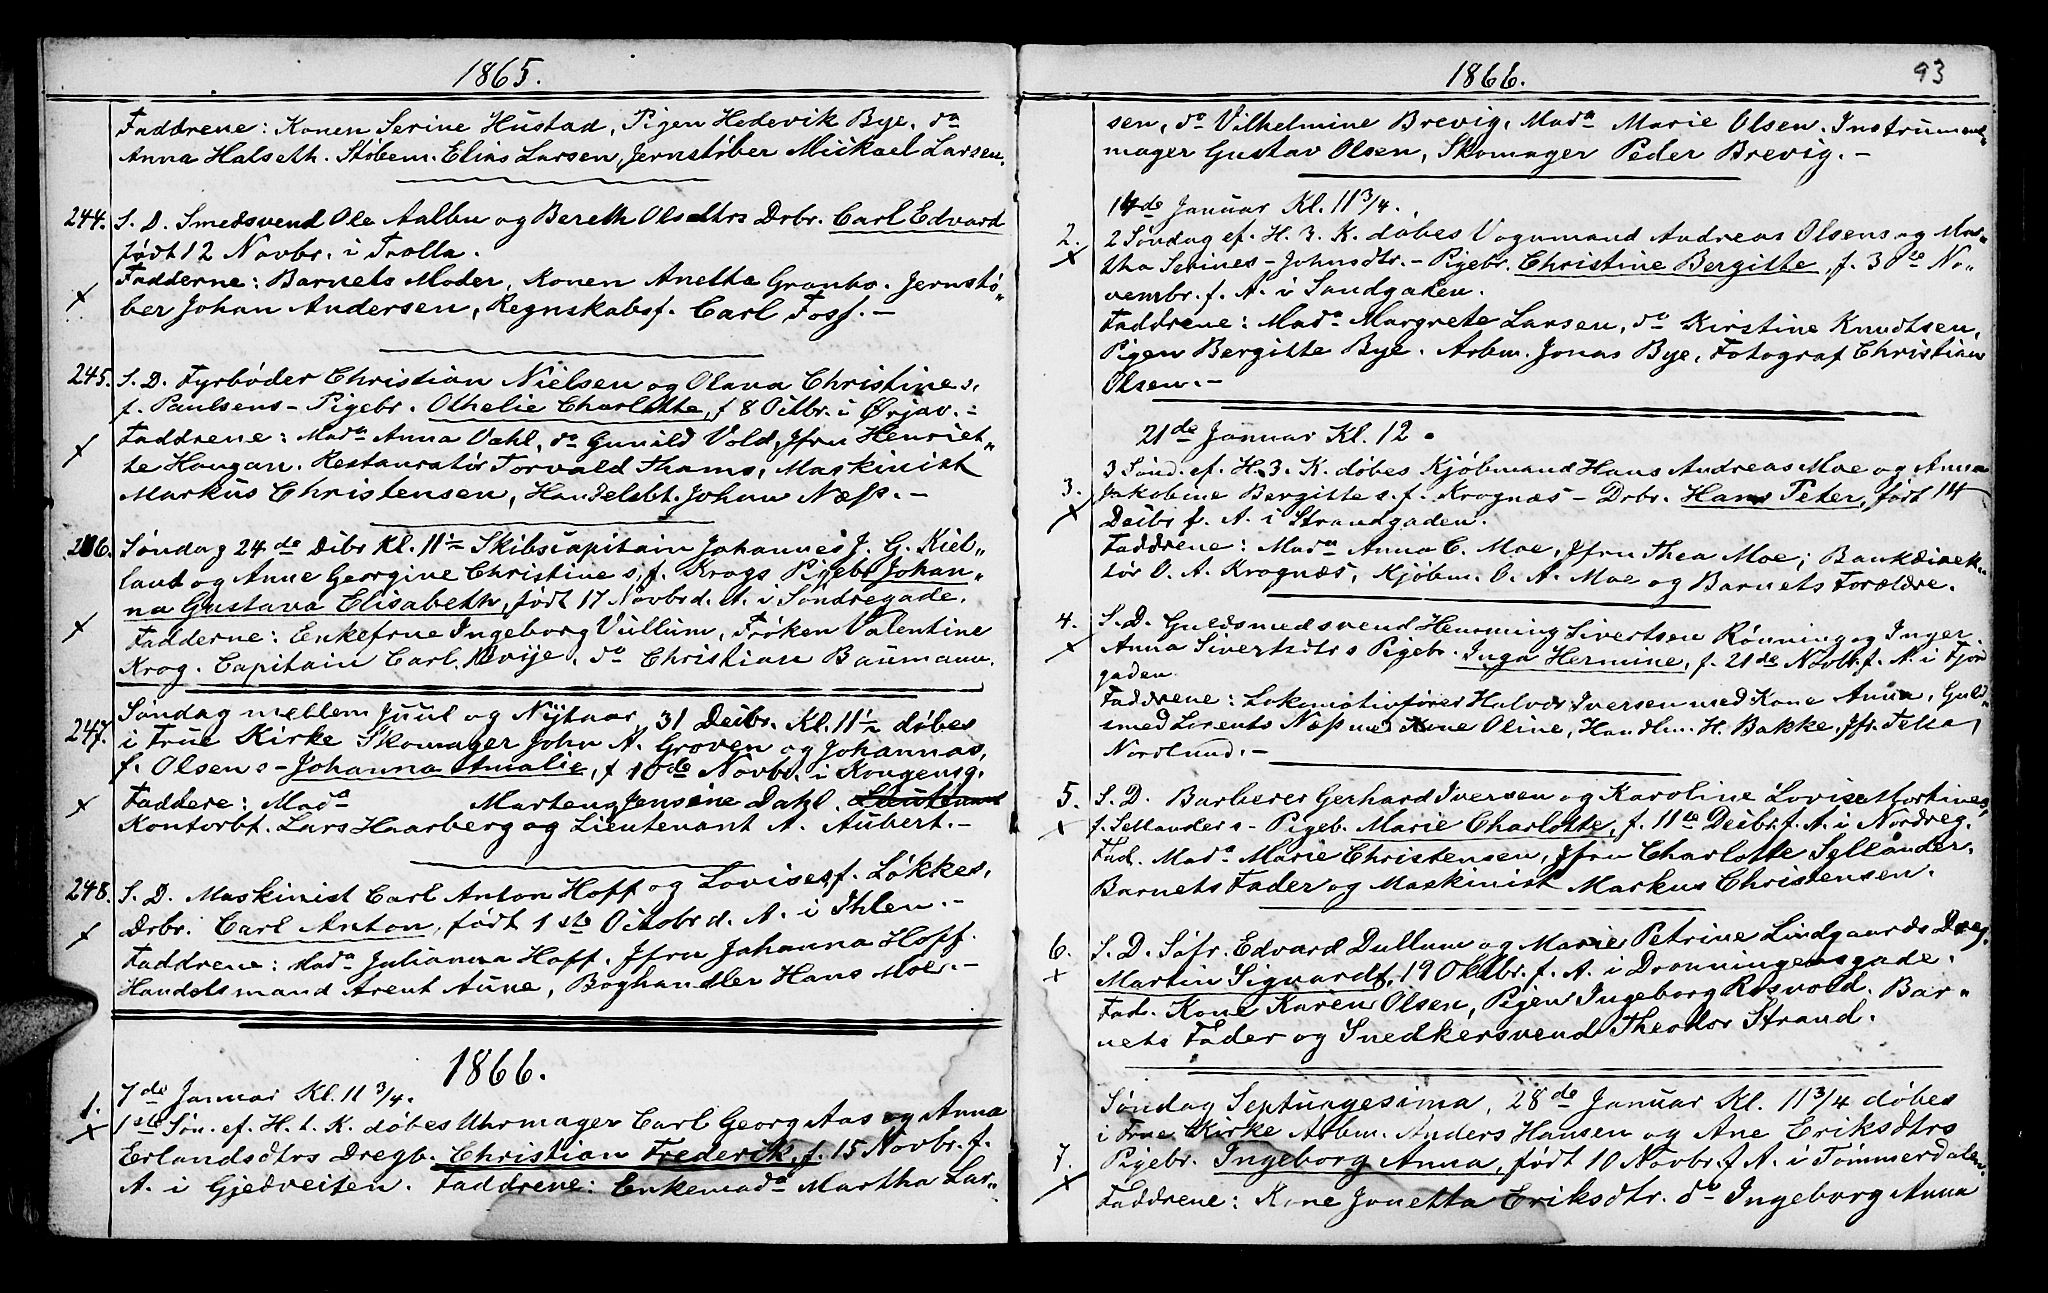 1865.
Faddrene: Konen Serine Hustad, Pigen Hedevik Bye, do
Anna Halseth. Støbem. Elias Larsen, Jernstøber Mickael Larsen.
244. S. D. Smedsvend Ole Aalbu og Bereth Olsdtrs Drbr. Carl Edvard
født 12 Novbr. i Trolla.
Fadderne: Barnets Moder, Konen Anetta Granbo. Jernstø„
x ber Johan Andersen, Regnskabsf. Carl Foss. –
245. S. D. Fyrbøder Christian Nielsen og Olava Christine s.
f. Paulsens – Pigebr. Othelie Charlotte, f 8 Octbr. i Ørjav. –
x Faddrene: Mada Anna Dahl, do Gunild Vold, Jfru Henriet„
te Haugan. Restauratør Torvald Thams, Maskinist
Markus Christensen, Handelsbt. Johan Næss. –
246. Søndag 24de Decbr Kl. 11½ Skibscapitain Johannes J. G. Kiel„
land og Anne Georgine Christine s. f. Krogs Pigebr Johan„
na Gustava Elisabeth, født 17 Novbr d. A. i Søndregade.
x Fadderne: Enkefrue Ingeborg Vullum, Frøken Valentine
Krog. Capitain Carl Hvije, do Christian Baumann.
247. Søndag mellem Juul og Nytaar, 31 Decbr. Kl. 11½ døbes
i Frue Kirke Skomager John A. Groven og Johannas,
f. Olsens – Johanna Amalie, f 10de Novbr. i Kongensg.
x Faddere: Mada Marteng Jensine Dahl. Lieutenant
Kontorbt. Lars Haarberg og Lieutenant A. Aubert. –
248. S. D. Maskinist Carl Anton Hoff og Lovises f. Løkkes,
Drbr. Carl Anton, født 1ste Octobr d. A. i Ihlen. –
x Faddrene: Mada Julianna Hoff. Jfru Johanna Hoff.
Handelsmand Arent Aune, Boghandler Hans Moe. –
1866.
1. 7de Januar Kl. 11 3/4.
x 1ste Søn. ef. H. t. K. døbes Uhrmager Carl Georg Aas og Anna
Erlandsdtrs Dregb. Christian Frederik, f. 15 Novbr. f.
A. i Gjedveiten. Faddrene: Enkemada Martha Lar„
1866. 93
sen, do Vilhelmine Brevig, Mada Marie Olsen. Instrument„
mager Gustav Olsen, Skomager Peder Brevig. –
14de Januar Kl. 11 3/4.
2. 2 Søndag ef. H. 3. K. døbes Vognmand Andreas Olsens og Mar„
x tha Serines – Johnsdtr. – Pigebr. Christine Bergitte, f. 30te No„
vembr. f. A. i Sandgaden.
Faddrene: Mada Margrete Larsen, do Kirstine Knudtsen,
Pigen Bergitte Bye. Arbm. Jonas Bye, Fotograf Christian
Olsen. –
21de Januar Kl. 12.
3 Sønd. ef. H. 3. K. døbes Kjøbmand Hans Andreas Moe og Anna
3. Jakobine Bergitte s. f. Krognæs – Drbr. Hans Peter, født 14
x Decbr f. A. i Strandgaden.
Faddrene: Mada Anna C. Moe, Jfru Thea Moe; Bankdirek„
tør O. A. Krognæs, Kjøbm. O. A. Moe og Barnets Forældre.
4. S. D. Guldsmedsvend Henning Sivertsen Rønning og Inger
x Anna Sivertsdtrs Pigebr. Inga Hermine, f. 21de Novbr. f. A. i Fjord
gaden.
Faddrene: Lokomotivfører Halvor Iversen med Kone Anna, Guld„
smed Lorents Næss med Kone Oline, Handlm. H. Bakke, Jfr. Jella
Nordlund. –
5. S. D. Barberer Gerhard Iversen og Karoline Lovise Mortines,
x f. Sellanders – Pigeb. Marie Charlotte, f. 11te Decbr. f. A. i Nordreg.
Fad. Mada Marie Christensen, Jfru Charlotte Sellander.
Barnets Fader og Maskinist Markus Christensen.
6. S. D. Søfr. Edvard Dullum og Marie Petrine Lindgaards Dreg.
x Martin Siguardt, f. 19 Oktbr. f. A. i Dronningensgade.
Fad. Kone Karen Olsen, Pigen Ingeborg Rosvold. Bar„
nets Fader og Snedkersvend Theodor Strand.
Søndag Septuagesima, 28de Januar Kl. 11 3/4 døbes
i Frue Kirke Arbm. Anders Hansen og Ane Eriksdtrs
7. Pigebr. Ingeborg Anna, født 10 Novbr. f A. i Tømmerdalen.
x Faddrene: Kone Jonetta Eriksdtr. do Ingeborg Anna